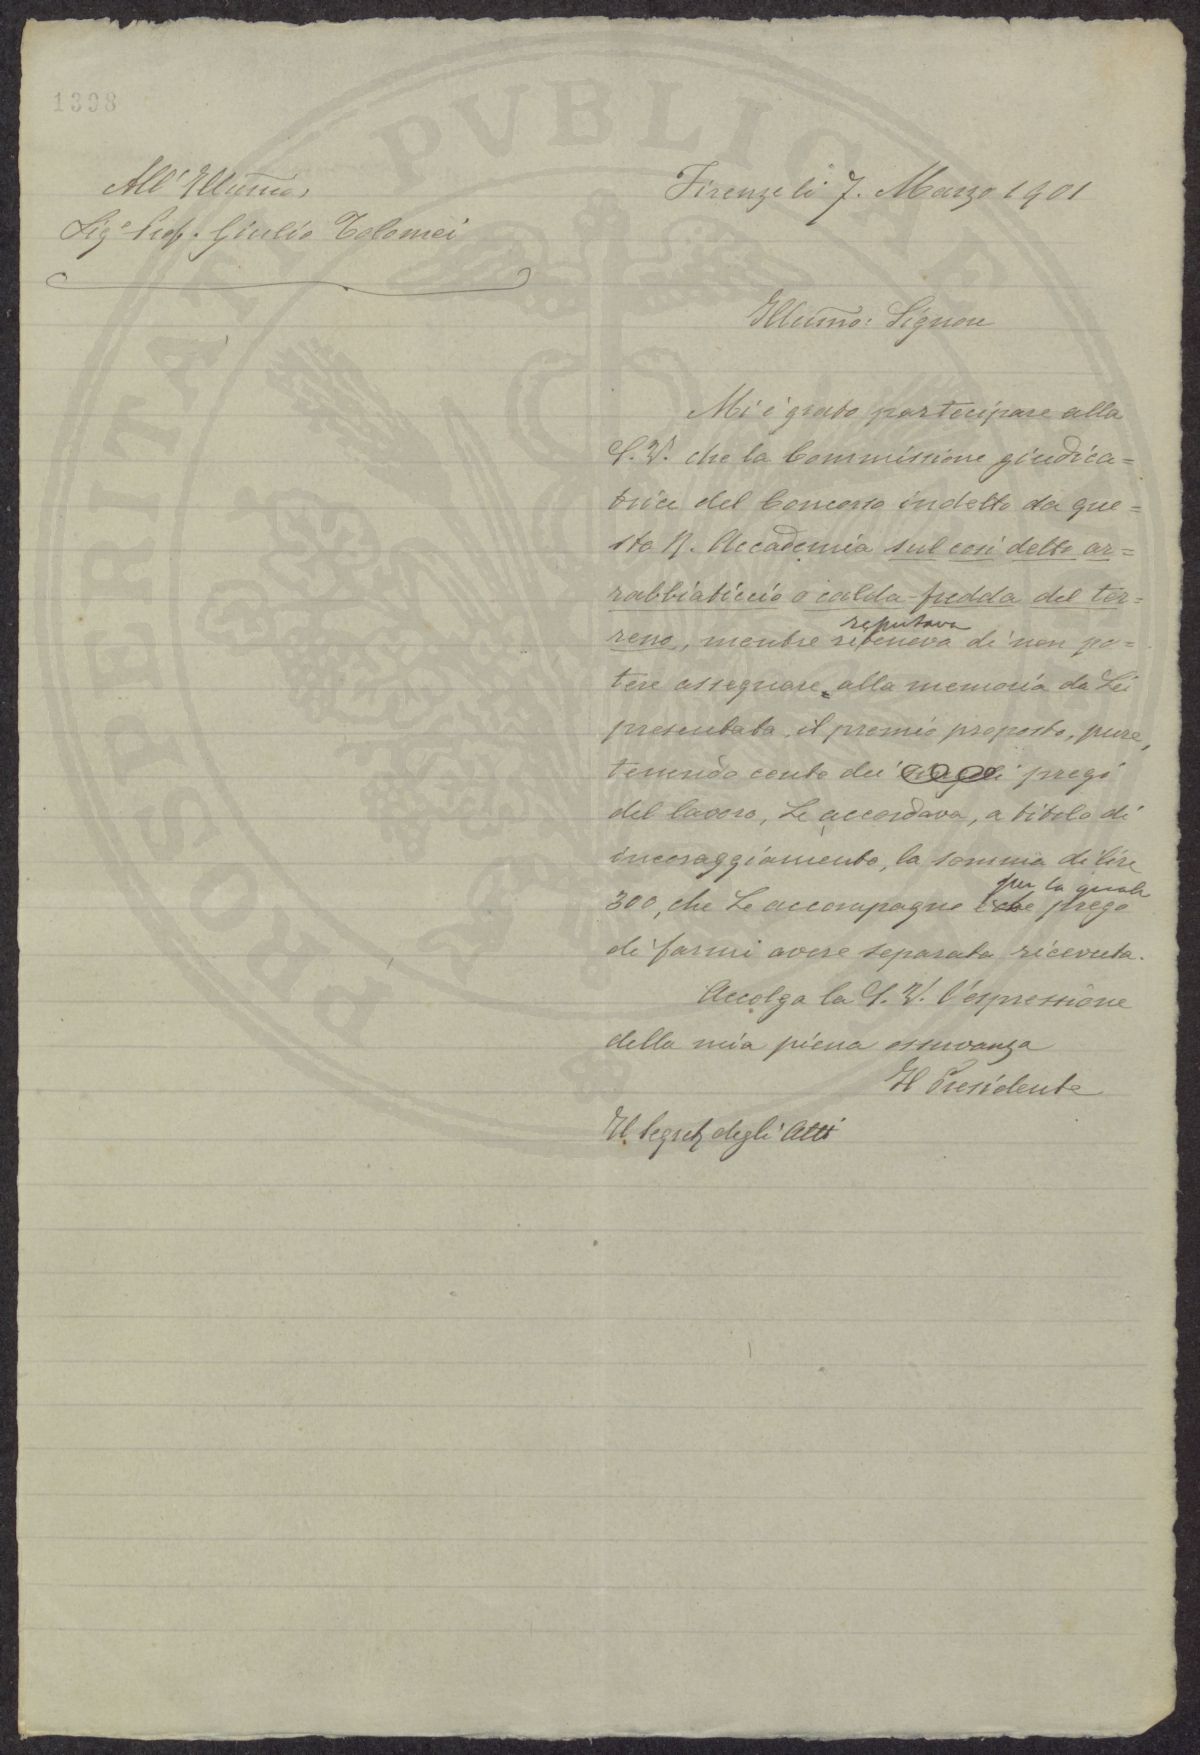 1398
All'Illumo:
Sigr Prof. Giulio Tolomei
Firenze li 7. Marzo 1901
Illumo: Signore
Mi è grato partecipare alla
S.V. che la Commissione giudica=
trice del Concorso indetto da que=
sta R. Accademia sul cosi detto ar=
rabbiaticcio o calda-fredda del ter=
reputava
reno, mentre riteneva di non po=
tere assegnare alla memoria da Lei
presentata, il premio proposto, pure,
tenendo conto dei pregi
del lavoro, Le accordava, a titolo di
incoraggiamento, la somma di lire
per la quale
300, che Le accompagno e che prego
di farmi avere separata ricevuta.
Accolga la S.V. l'espressione
della mia piena osservanza
Il Presidente
Il Segret. degli Atti
PROSPERITATI PVBLICAE